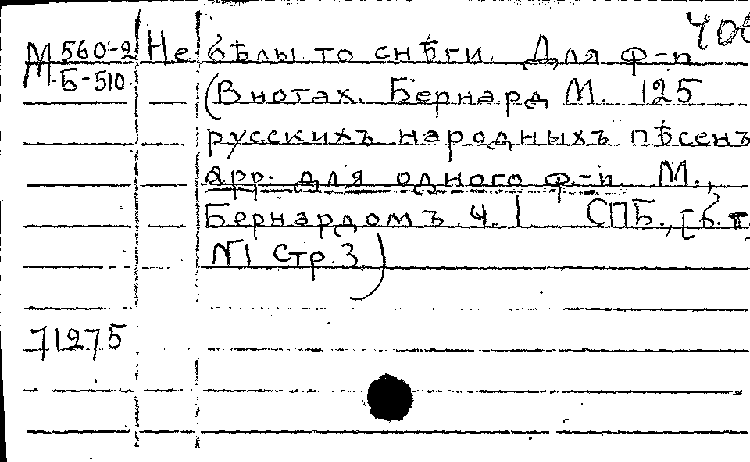 400
М 560-2 Не бѣлы то снѣги. Для ф-п
М Б-510
(В нотах. Бернард М. 125
русскихъ народныхъ пѣсенъ
арр. для одного ф-п М.,
Бернардомъ ч. 1 СПБ., [б. г.
№1 стр. 3)
71275